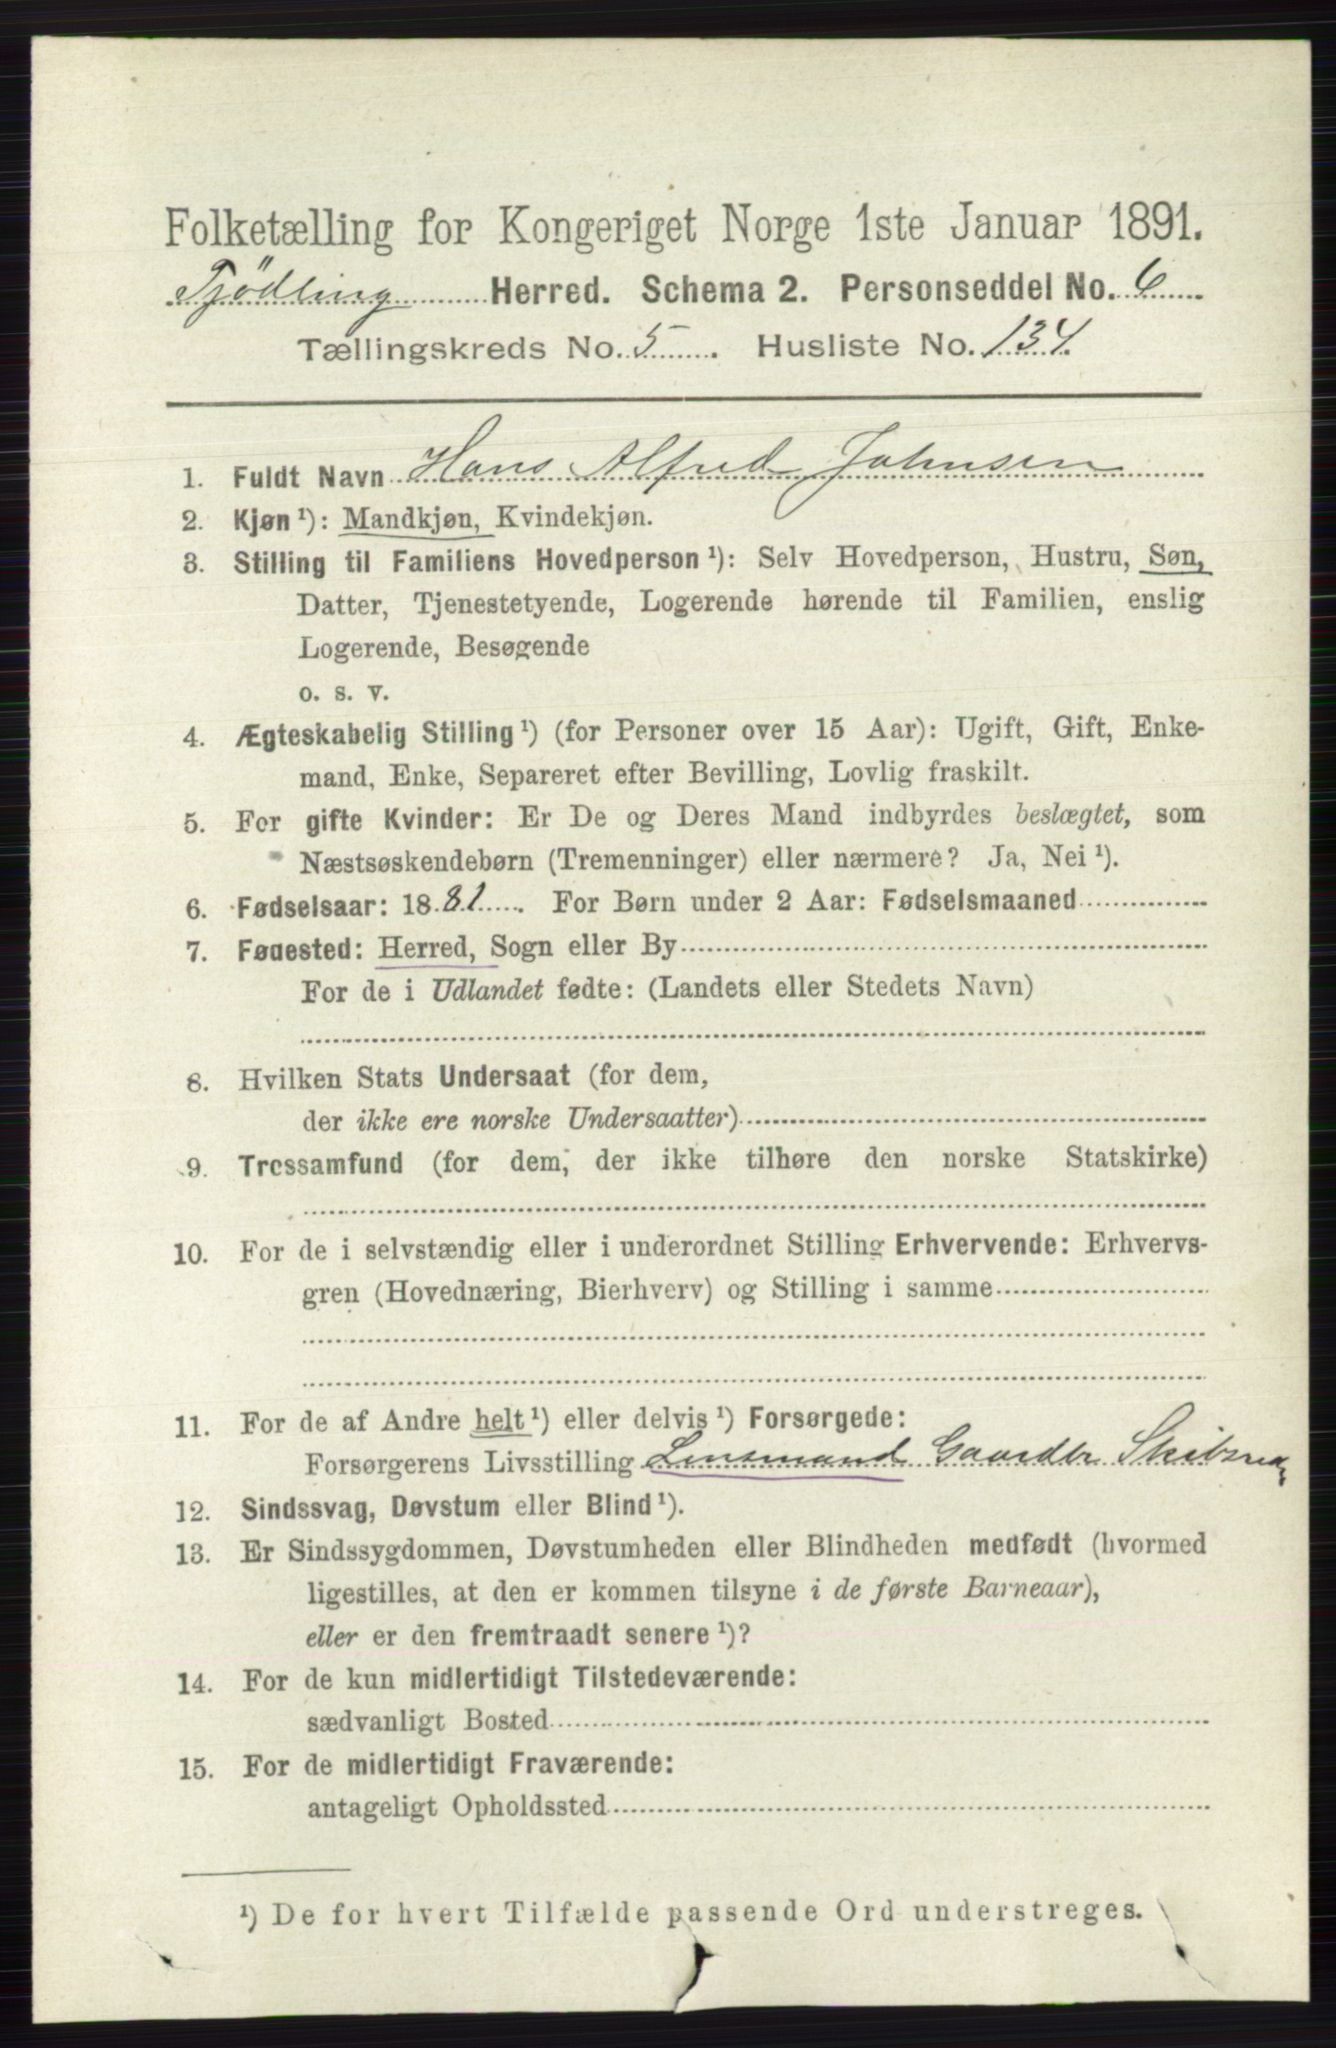 Folketælling for Kongeriget Norge 1ste Januar 1891.
Tjödling Herred. Schema 2. Personseddel No. 6
Tællingskreds No. 5. Husliste No. 134.
1. Fuldt Navn Hans Alfred Johnsen
2. Kjøn ¹): Mandkjøn, Kvindekjøn.
3. Stilling til Familiens Hovedperson ¹): Selv Hovedperson, Hustru, Søn,
Datter, Tjenestetyende, Logerende hørende til Familien, enslig
Logerende, Besøgende
o. s. v.
4. Ægteskabelig Stilling ¹) (for Personer over 15 Aar): Ugift, Gift, Enke-
mand, Enke, Separeret efter Bevilling, Lovlig fraskilt.
5. For gifte Kvinder: Er De og Deres Mand indbyrdes beslægtet, som
Næstsøskendebørn (Tremenninger) eller nærmere? Ja, Nei ¹).
6. Fødselsaar: 1881. For Børn under 2 Aar: Fødselsmaaned
7. Fødested: Herred, Sogn eller By
For de i Udlandet fødte: (Landets eller Stedets Navn)
8. Hvilken Stats Undersaat (for dem,
der ikke ere norske Undersaatter)
9. Trossamfund (for dem, der ikke tilhøre den norske Statskirke)
10. For de i selvstændig eller i underordnet Stilling Erhvervende: Erhvervs-
gren (Hovednæring, Bierhverv) og Stilling i samme
11. For de af Andre helt ¹) eller delvis ¹) Forsørgede:
Forsørgerens Livsstilling Lensmand Gaardbr
12. Sindssvag, Døvstum eller Blind ¹).
13. Er Sindssygdommen, Døvstumheden eller Blindheden medfødt (hvormed
ligestilles, at den er kommen tilsyne i de første Barneaar),
eller er den fremtraadt senere ¹)?
14. For de kun midlertidigt Tilstedeværende:
sædvanligt Bosted
15. For de midlertidigt Fraværende:
antageligt Opholdssted
¹) De for hvert Tilfælde passende Ord understreges.